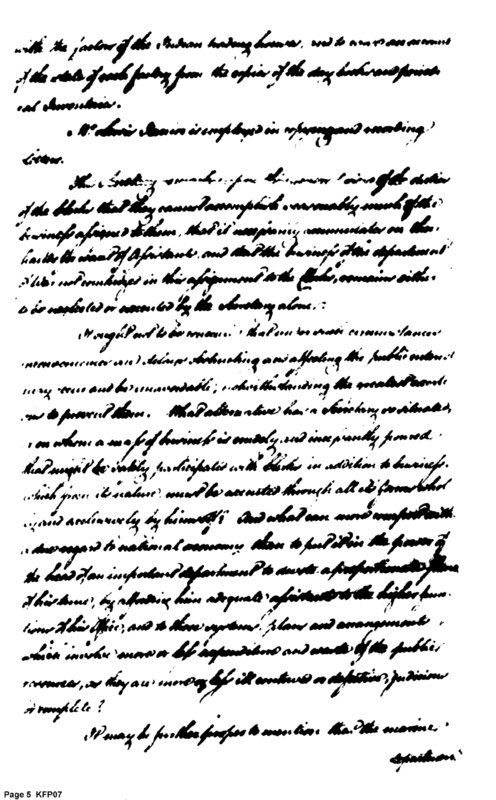 with the factors of the Indian trading houses, and to an account
of the state of each factory from the copies of the day books and
Inventories.
Mr. Lewis is employed in copying and recording
Letters.
The of the duties
of the Clerks that they cannot accomplish reasonably much of the
business assigned to them, that it accumulates on their
hands the want of Assistants, and that the business of the department
of War not in this assignment to the Clerks, remains either
to be neglected or executed by the Secretary alone.
It ought not to be that under such circumstances
and delays and affecting the public interest
may and be unavoidable, notwithstanding the greatest
to prevent them. What alternative has a Secretary so situated,
on whom a mass of business is and incessantly poured
that might be safely participated with Clerks in addition to business
which from its nature must be executed through all its forms
and exclusively by himself? And what can more comport with
a due regard to national economy than to put it in the power of
the head of an important department to devote a proportionate share
of his time, by affording him adequate assistants to the higher func
tions of his Office, and to those systems, plans and arrangements
which involve more or less expenditure and waste of the public
resources, as they are more or less ill contrived or defective, judicious
or complete?
It may be further proper to mention that the marine
department
Page 5 KFP07